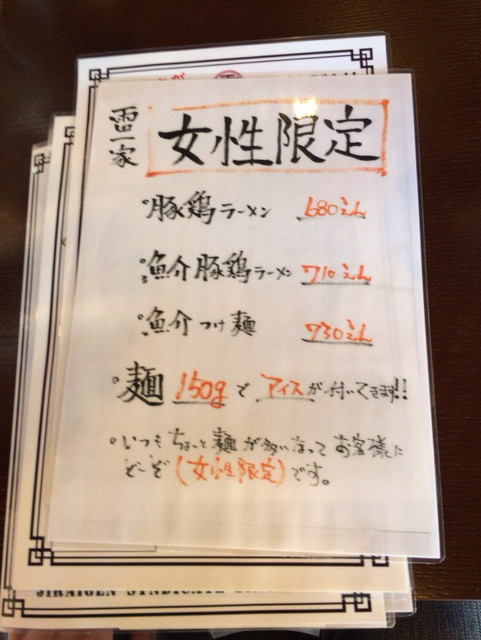 雷家
女性限定
豚鶏ラーメン 680えん
魚介豚鶏ラーメン 710えん
魚介つけ麺 730えん
麺 150gで アイスが付いてきます!!
いつもちょっと麺が多いなって お客様に
どーぞ(女性限定)です。
JIKAIGEN SYNDICATE